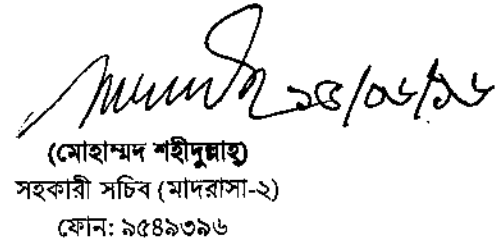 ১৫/০৬/১৬
(মোহাম্মদ শহীদুল্লাহ্)
সহকারী সচিব (মাদরাসা-২)
ফোন: ৯৫৪৯৩৯৬